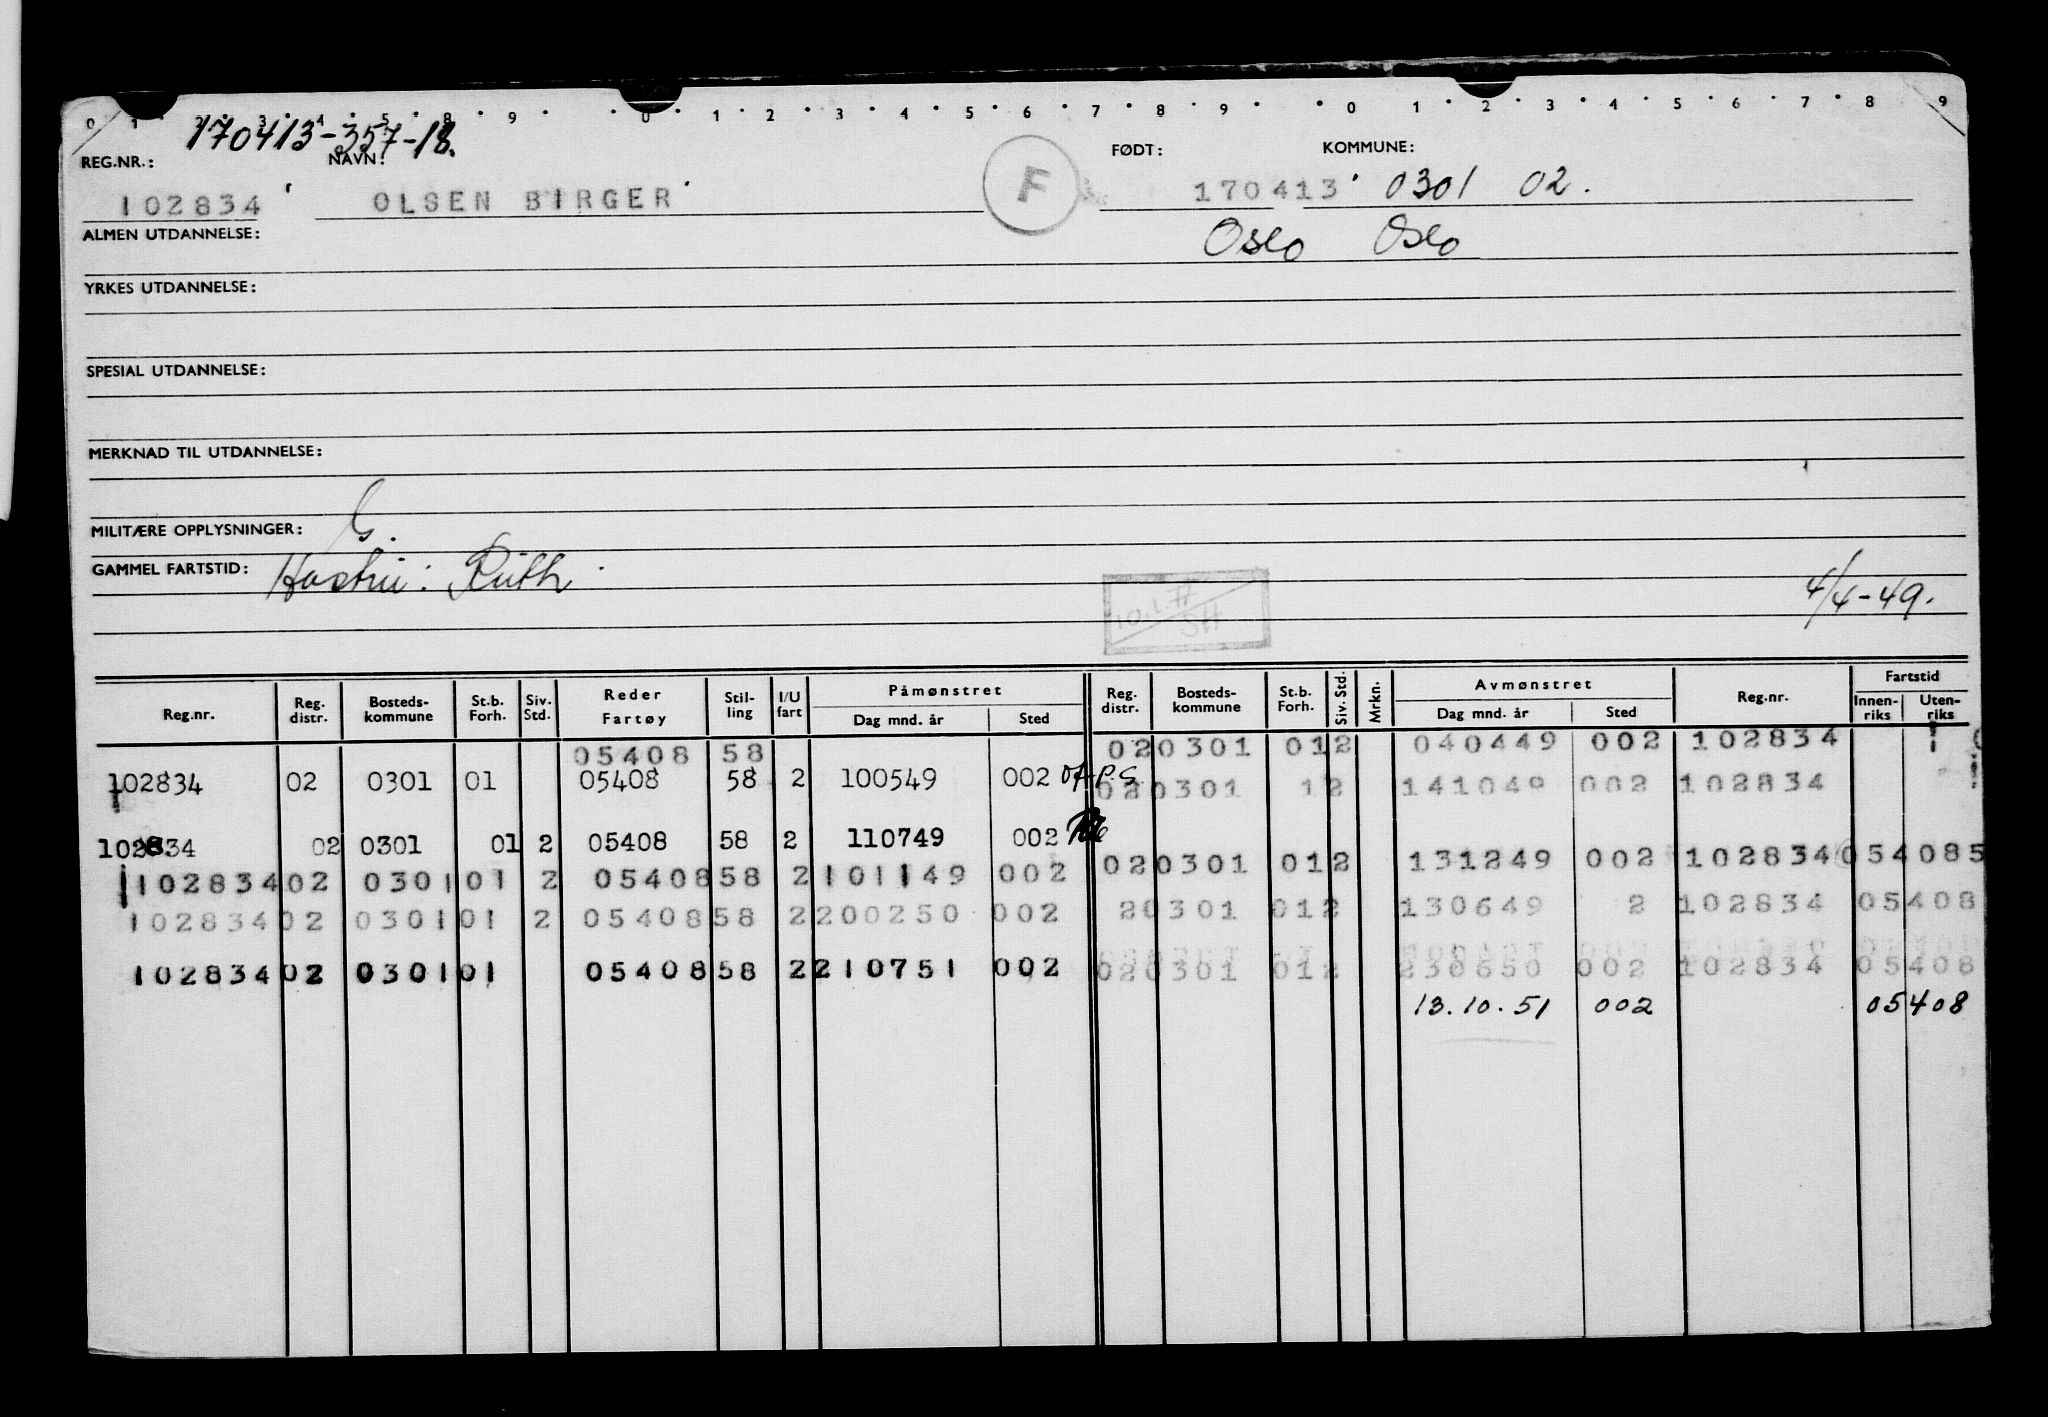 0 1 2 3 4 5 8 9 0 1 2 3 4 5 6 7 8 9 0 1 2 3 4 5 6 7 8 9
170413-357-18.
REG.NR.: NAVN: FØDT: KOMMUNE:
102834 OLSEN BIRGER F 170413 0301 02.
ALMEN UTDANNELSE: Oslo Oslo
YRKES UTDANNELSE:
SPESIAL UTDANNELSE:
MERKNAD TIL UTDANNELSE:
MILITÆRE OPPLYSNINGER: G.
GAMMEL FARTSTID: Hustru: Ruth
10.1.77 SH
4/4-49.
Reg.nr. Reg. distr. Bosteds-kommune St.b. Forh. Siv. Std. Reder Fartøy Stil-ling I/U fart Påmønstret Dag mnd. år Sted Reg. distr. Bosteds-kommune St.b. Forh. Siv. Std. Mrkn. Avmønstret Dag mnd. år Sted Reg.nr. Fartstid Innen-riks Uten-riks
05408 58 02 0301 01 2 040449 002 102834
102834 02 0301 01 05408 58 2 100549 002 02 0301 1 2 141049 002 102834
102834 02 0301 01 2 05408 58 2 110749 002
02 0301 01 2 131249 002 102834 054085
102834 02 0301 01 2 05408 58 2 101149 002
102834 02 0301 01 2 05408 58 2 200250 002 2 0301 01 2 130649 2 102834 05408
102834 02 0301 01 05408 58 2 210751 002 02 0301 01 2 230650 002 102834 05408
13.10.51 002 05408